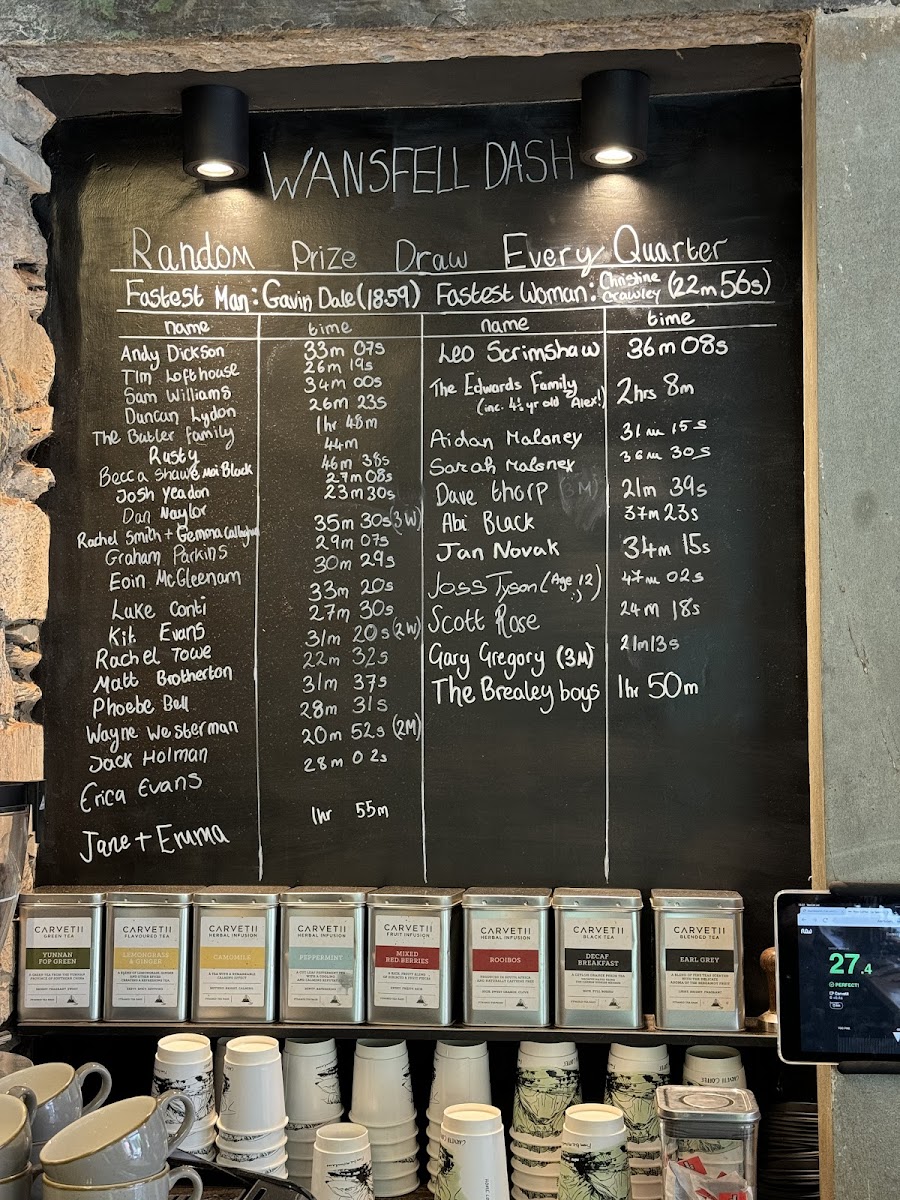 WANSFELL DASH
Random Prize Draw Every Quarter
Fastest Man: Gavin Dale (18:59) Fastest Woman: Christine Crawley (22m 56s)
name time name time
Andy Dickson 33m 07s
Tim Lofthouse 26m 19s
Sam Williams 34m 00s
Duncan Lydon 26m 23s
The Butler family 1hr 48m
Rusty 44m
Becca Shawe Moi Black 46m 38s
Josh Yeadon 27m 08s
Dan Naylor 23m 30s
Rachel Smith + Gemma Callaghan 35m 30s (3W)
Graham Parkins 29m 07s
Eoin McGleenam 30m 29s
Luke Conti 33m 20s
Kit Evans 27m 30s
Rachel Towe 31m 20s (2W)
Matt Brotherton 22m 32s
Phoebe Bell 31m 37s
Wayne Westerman 28m 31s
Jack Holman 20m 52s (2M)
Erica Evans 28m 02s
Jane + Emma 1hr 55m
Leo Scrimshaw 36m 08s
The Edwards Family 2hrs 8m
(inc. 4½ yr old Alex!)
Aidan Maloney 31m 15s
Sarah Maloney 36m 30s
Dave thorp (3M) 21m 39s
Abi Black 37m 23s
Jan Novak 34m 15s
Joss Tyson (Age 12 :) ) 47m 02s
Scott Rose 24m 18s
Gary Gregory (3M) 21m13s
The Brealey boys 1hr 50m
CARVETII
GREEN TEA
YUNNAN
POP GREEN
CARVETII
FLAVOURED TEA
LEMONGRASS
& GINGER
CARVETII
HERBAL INFUSION
CAMOMILE
CARVETII
HERBAL INFUSION
PEPPERMINT
CARVETII
FRUIT INFUSION
MIXED
RED BERRIES
CARVETII
HERBAL INFUSION
ROOIBOS
CARVETII
BLACK TEA
DECAF
BREAKFAST
CARVETII
BLENDED TEA
EARL GREY
27.4
PERFECT!
CARVETII COFFEE